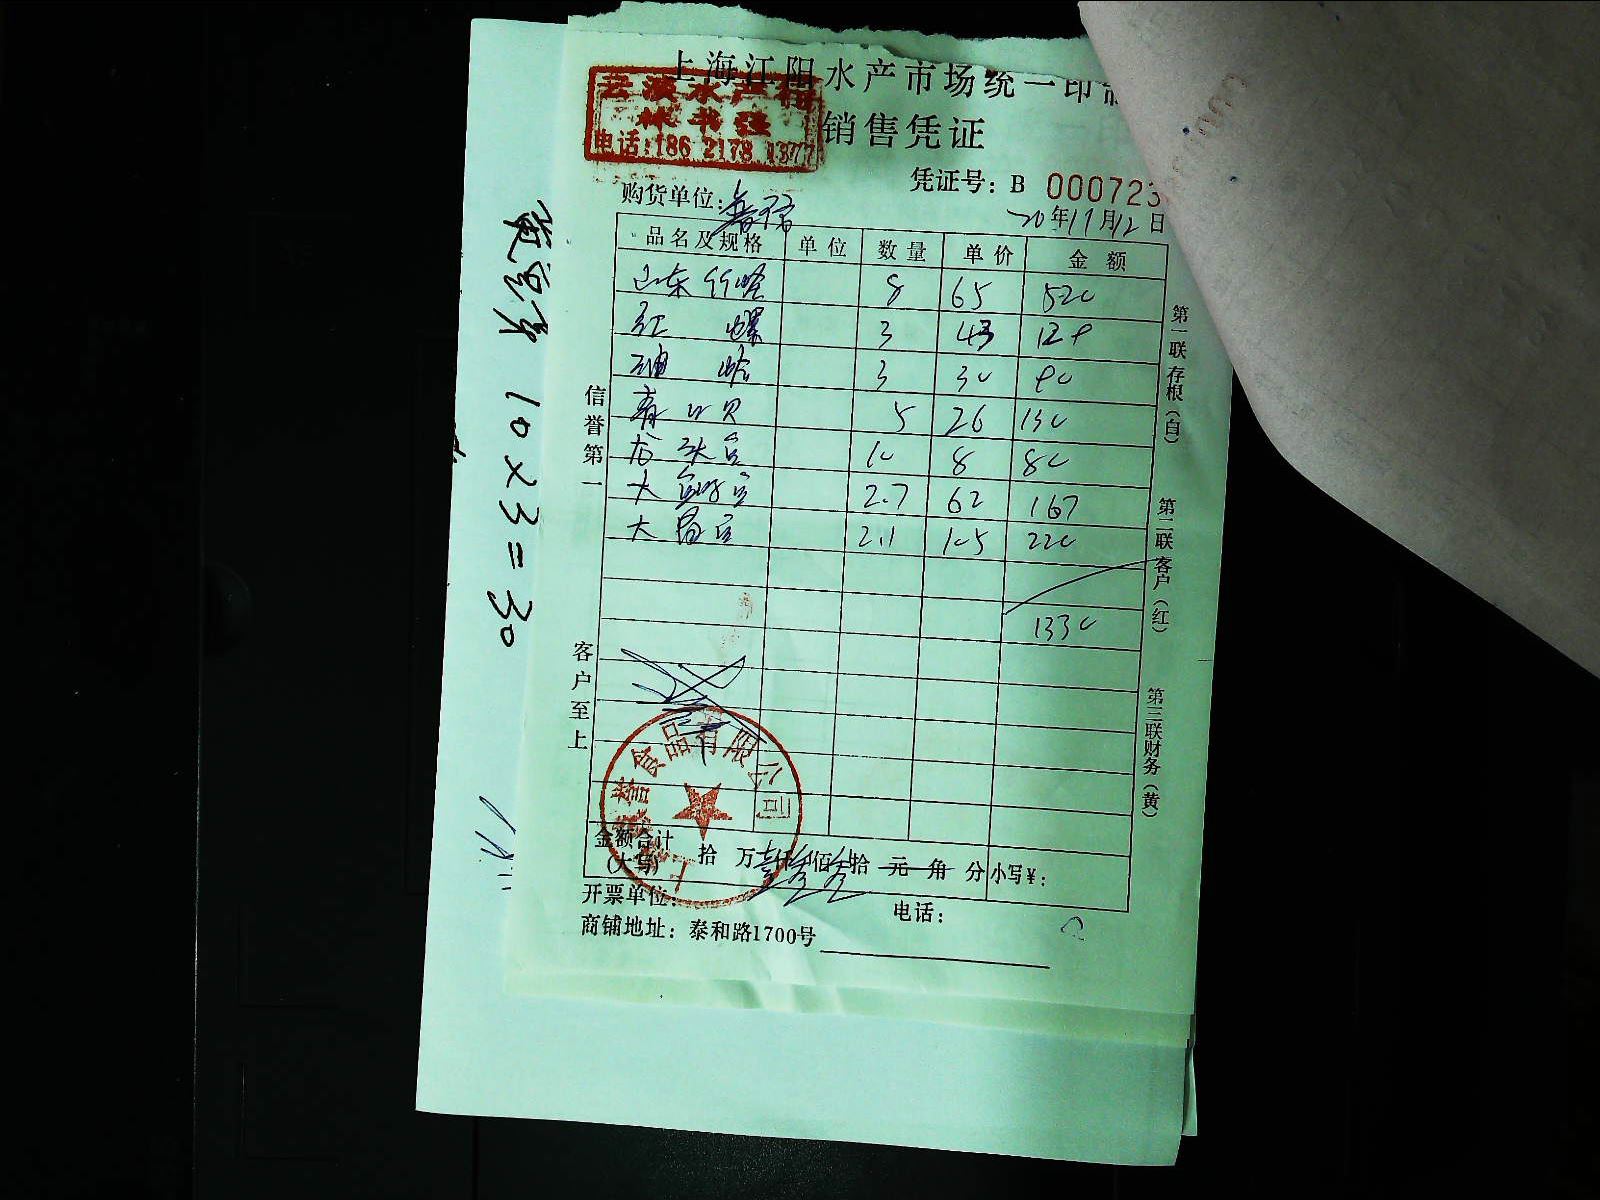 上海江阳水产市场统一印制
销售凭证
电话:186 2178 1377
凭证号: B 000723
购货单位:
20年11月12日
品名及规格 单位 数量 单价 金额
山东竹蛏 8 65 520
红螺 3 43 129
油蛤 3 30 90
青口贝 5 26 130
龙头 10 8 80
大 2.7 62 167
大 2.1 105 220
1330
信誉第一
客户至上
第一联存根(白)
第二联客户(红)
第三联财务(黄)
食品有限公司
金额合计
(大写) 拾 万 壹仟 叁佰 叁拾 元 角 分 小写¥:
开票单位:
电话:
商铺地址: 泰和路1700号
10×3=30